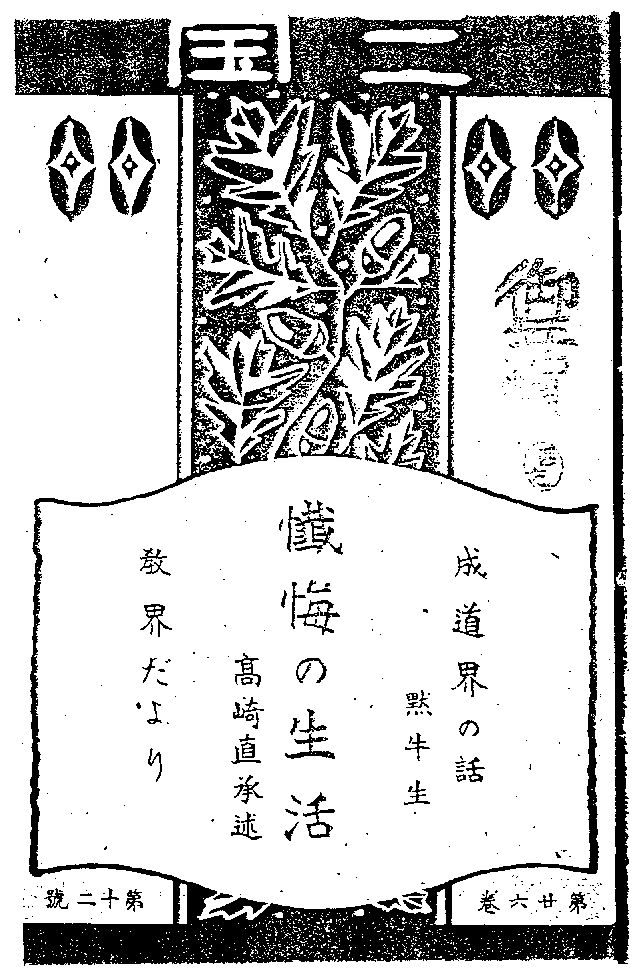 二国
成道界の話
黙牛生
懺悔の生活
高崎直承述
教界だより
第廿六卷
第十二號